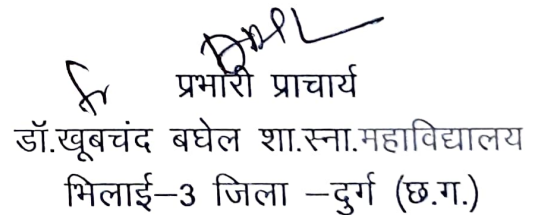 प्रभारी प्राचार्य
डॉ.खूबचंद बघेल शा.स्ना.महाविद्यालय
भिलाई-3 जिला -दुर्ग (छ.ग.)